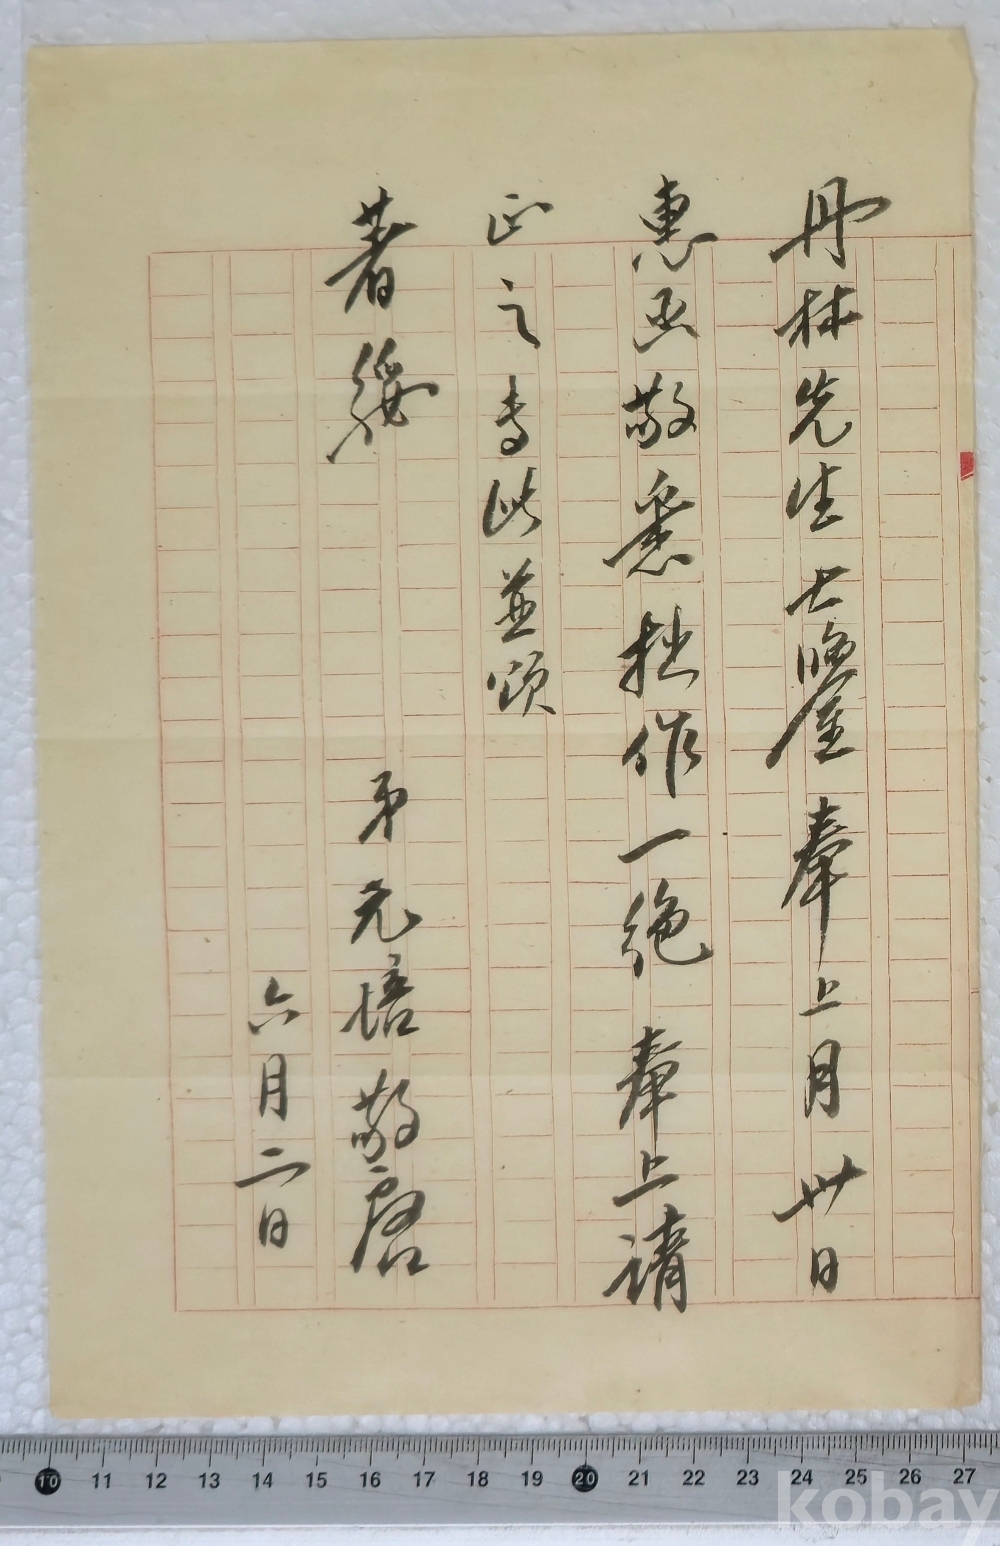 丹林先生大鑒奉上月卅日
惠函敬悉拙作一絕奉上請
正之專此並頌
著綏
弟元培敬啓
六月二日
10 11 12 13 14 15 16 17 18 19 20 21 22 23 24 25 26 27
kobay